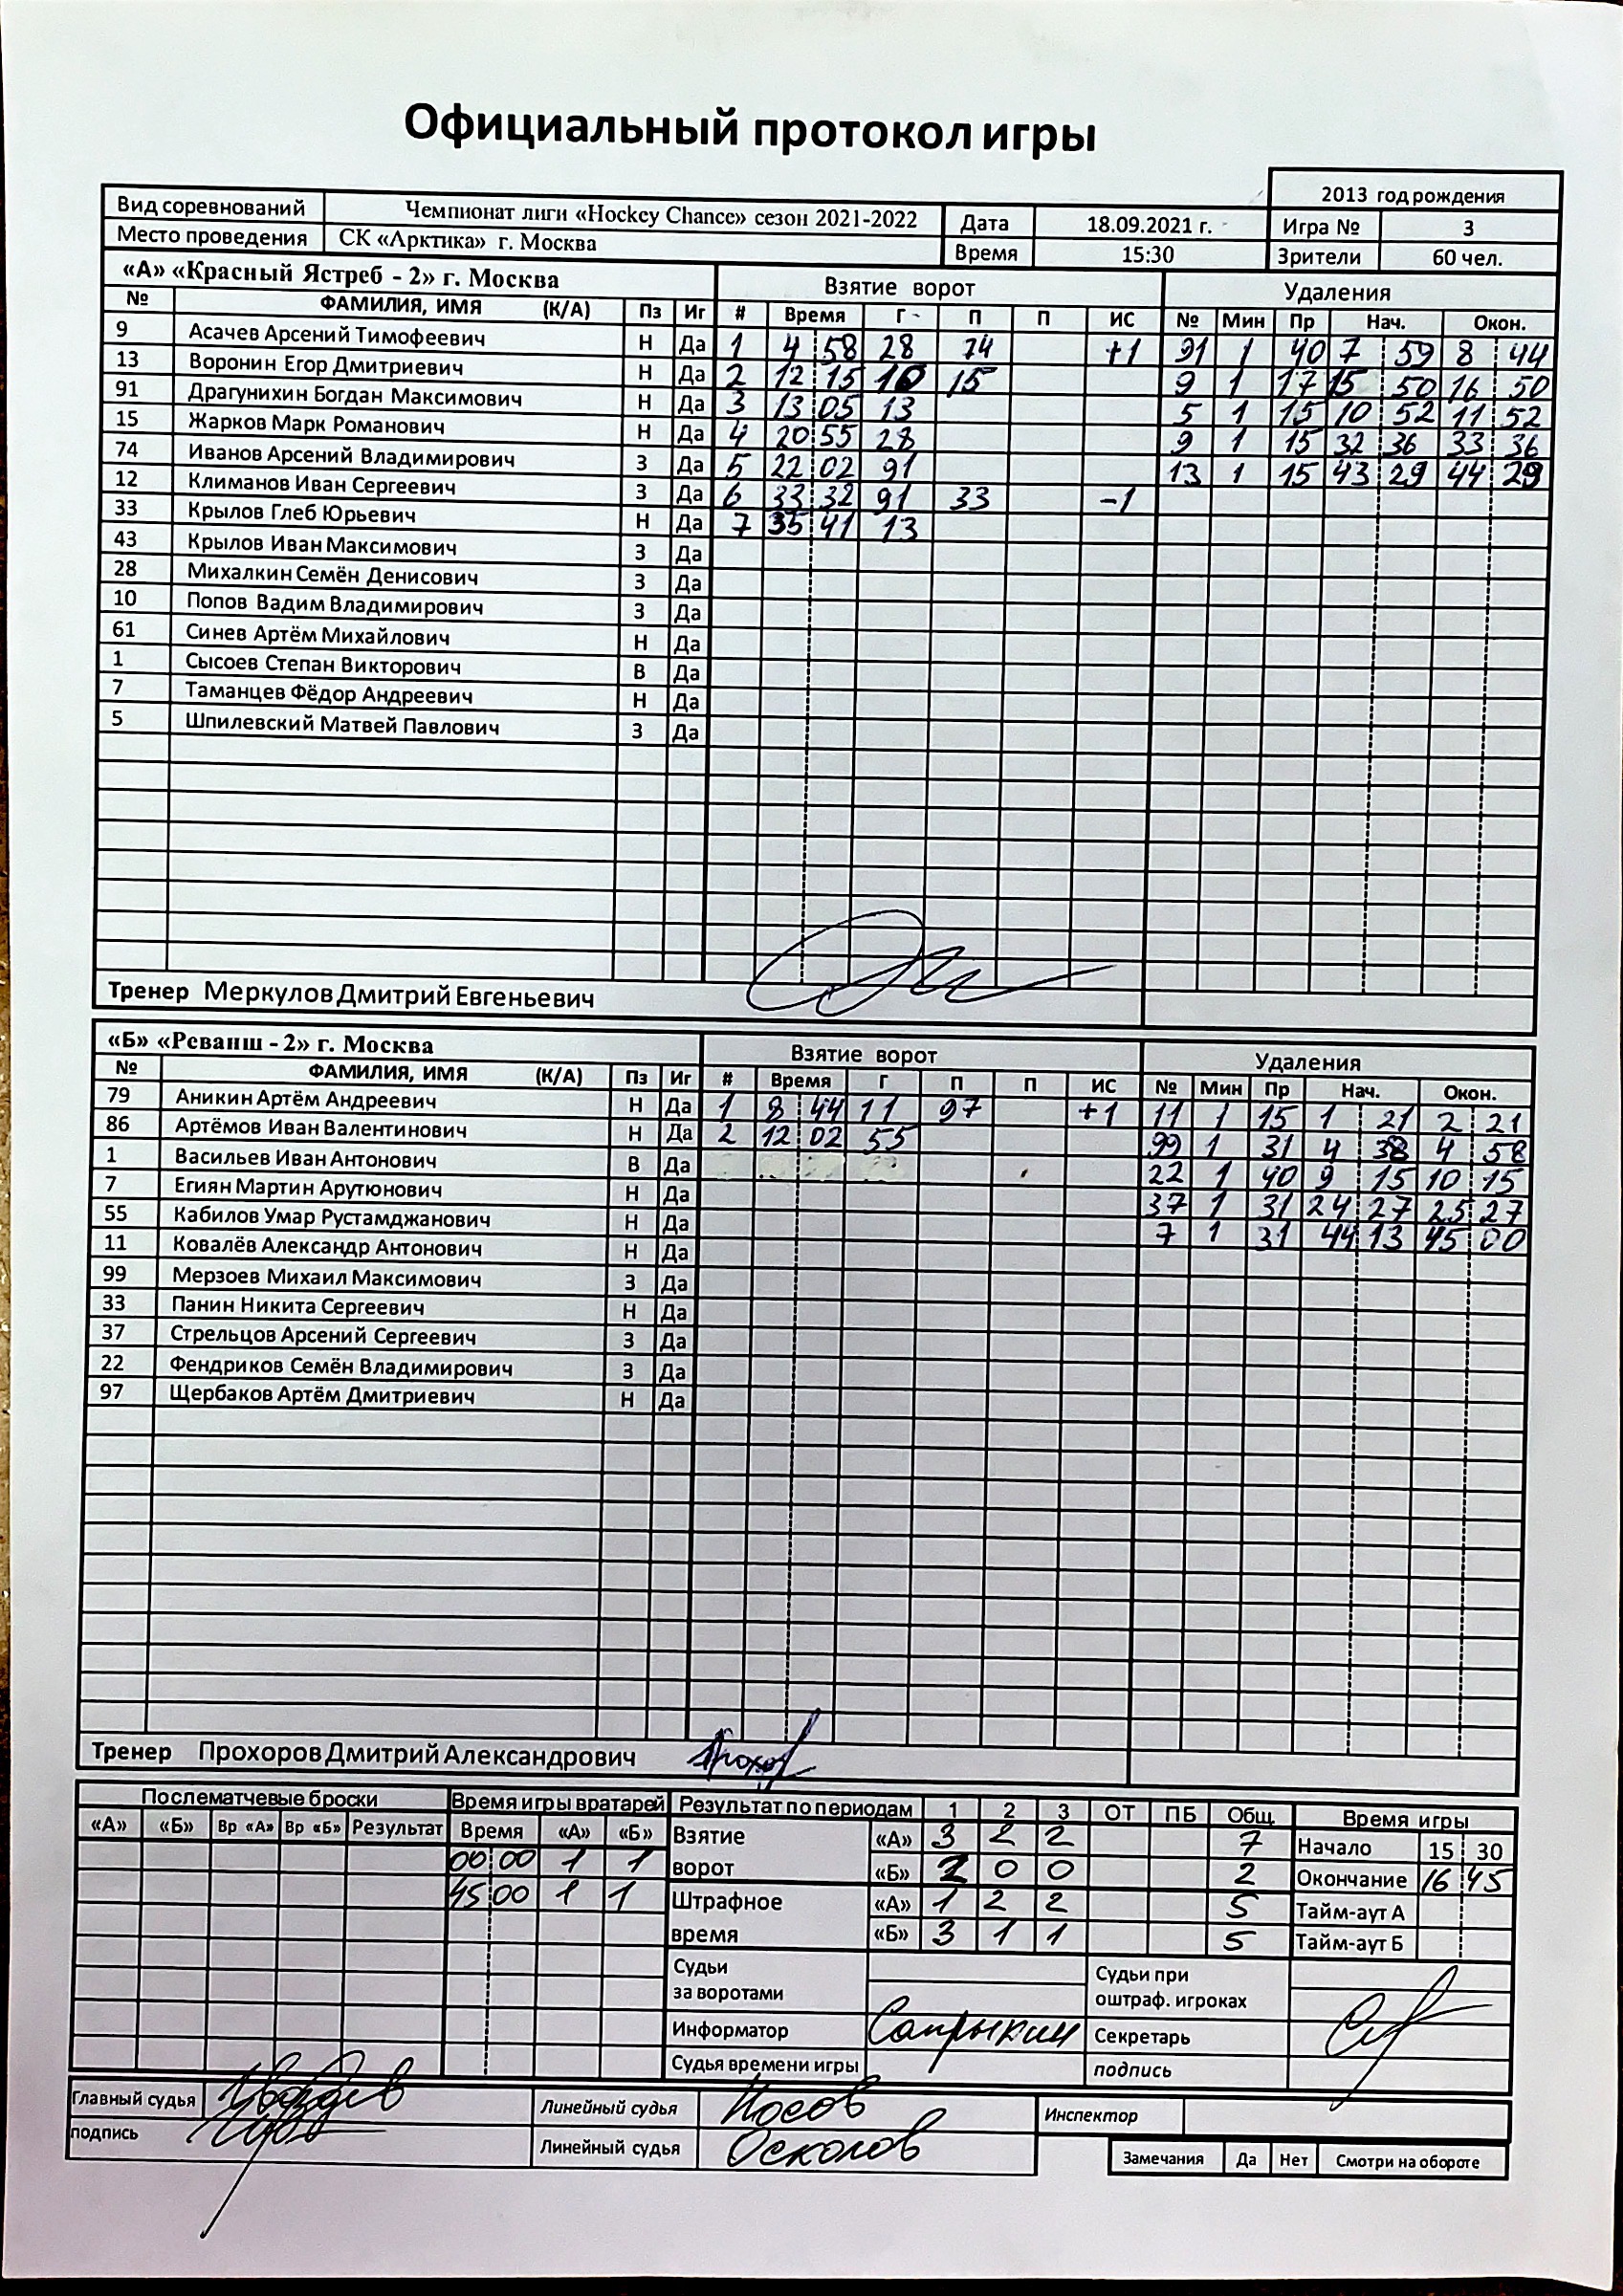 Официальный протокол игры
2013 год рождения
Вид соревнований Чемпионат лиги «Hockey Chance» сезон 2021-2022 Дата 18.09.2021 г. Игра № 3
Место проведения СК «Арктика» г. Москва Время 15:30 Зрители 60 чел.
«А» «Красный Ястреб - 2» г. Москва Взятие ворот Удаления
№ ФАМИЛИЯ, ИМЯ (К/А) Пз Иг # Время Г П П ИС № Мин Пр Нач. Окон.
9 Асачев Арсений Тимофеевич Н Да 1 4 58 28 74 +1 91 1 40 7 59 8 44
13 Воронин Егор Дмитриевич Н Да 2 12 15 10 15 9 1 17 15 50 16 50
91 Драгунихин Богдан Максимович Н Да 3 13 05 13 5 1 15 10 52 11 52
15 Жарков Марк Романович Н Да 4 20 55 28 9 1 15 32 36 33 36
74 Иванов Арсений Владимирович З Да 5 22 02 91 13 1 15 43 29 44 29
12 Климанов Иван Сергеевич З Да 6 33 32 91 33 -1
33 Крылов Глеб Юрьевич Н Да 7 35 41 13
43 Крылов Иван Максимович З Да
28 Михалкин Семён Денисович З Да
10 Попов Вадим Владимирович З Да
61 Синев Артём Михайлович Н Да
1 Сысоев Степан Викторович В Да
7 Таманцев Фёдор Андреевич Н Да
5 Шпилевский Матвей Павлович З Да
Тренер Меркулов Дмитрий Евгеньевич
«Б» «Реванш - 2» г. Москва Взятие ворот Удаления
№ ФАМИЛИЯ, ИМЯ (К/А) Пз Иг # Время Г П П ИС № Мин Пр Нач. Окон.
79 Аникин Артём Андреевич Н Да 1 8 44 11 97 +1 11 1 15 1 21 2 21
86 Артёмов Иван Валентинович Н Да 2 12 02 55 99 1 31 4 38 4 58
1 Васильев Иван Антонович В Да 22 1 40 9 15 10 15
7 Егиян Мартин Арутюнович Н Да 37 1 31 24 27 25 27
55 Кабилов Умар Рустамджанович Н Да 7 1 31 44 13 45 00
11 Ковалёв Александр Антонович Н Да
99 Мерзоев Михаил Максимович З Да
33 Панин Никита Сергеевич Н Да
37 Стрельцов Арсений Сергеевич З Да
22 Фендриков Семён Владимирович З Да
97 Щербаков Артём Дмитриевич Н Да
Тренер Прохоров Дмитрий Александрович Прохор
Послематчевые броски Время игры вратарей Результат по периодам 1 2 3 ОТ ПБ Общ. Время игры
«А» «Б» Вр «А» Вр «Б» Результат Время «А» «Б» Взятие «А» 3 2 2 7 Начало 15 30
00 00 1 1 ворот «Б» 2 0 0 2 Окончание 16 45
45 00 1 1 Штрафное «А» 1 2 2 5 Тайм-аут А
время «Б» 3 1 1 5 Тайм-аут Б
Судьи Судьи при
за воротами оштраф. игроках
Информатор Сапрыкин Секретарь
Судья времени игры подпись
Главный судья Линейный судья Носов Инспектор
подпись Линейный судья Осколов
Замечания Да Нет Смотри на обороте